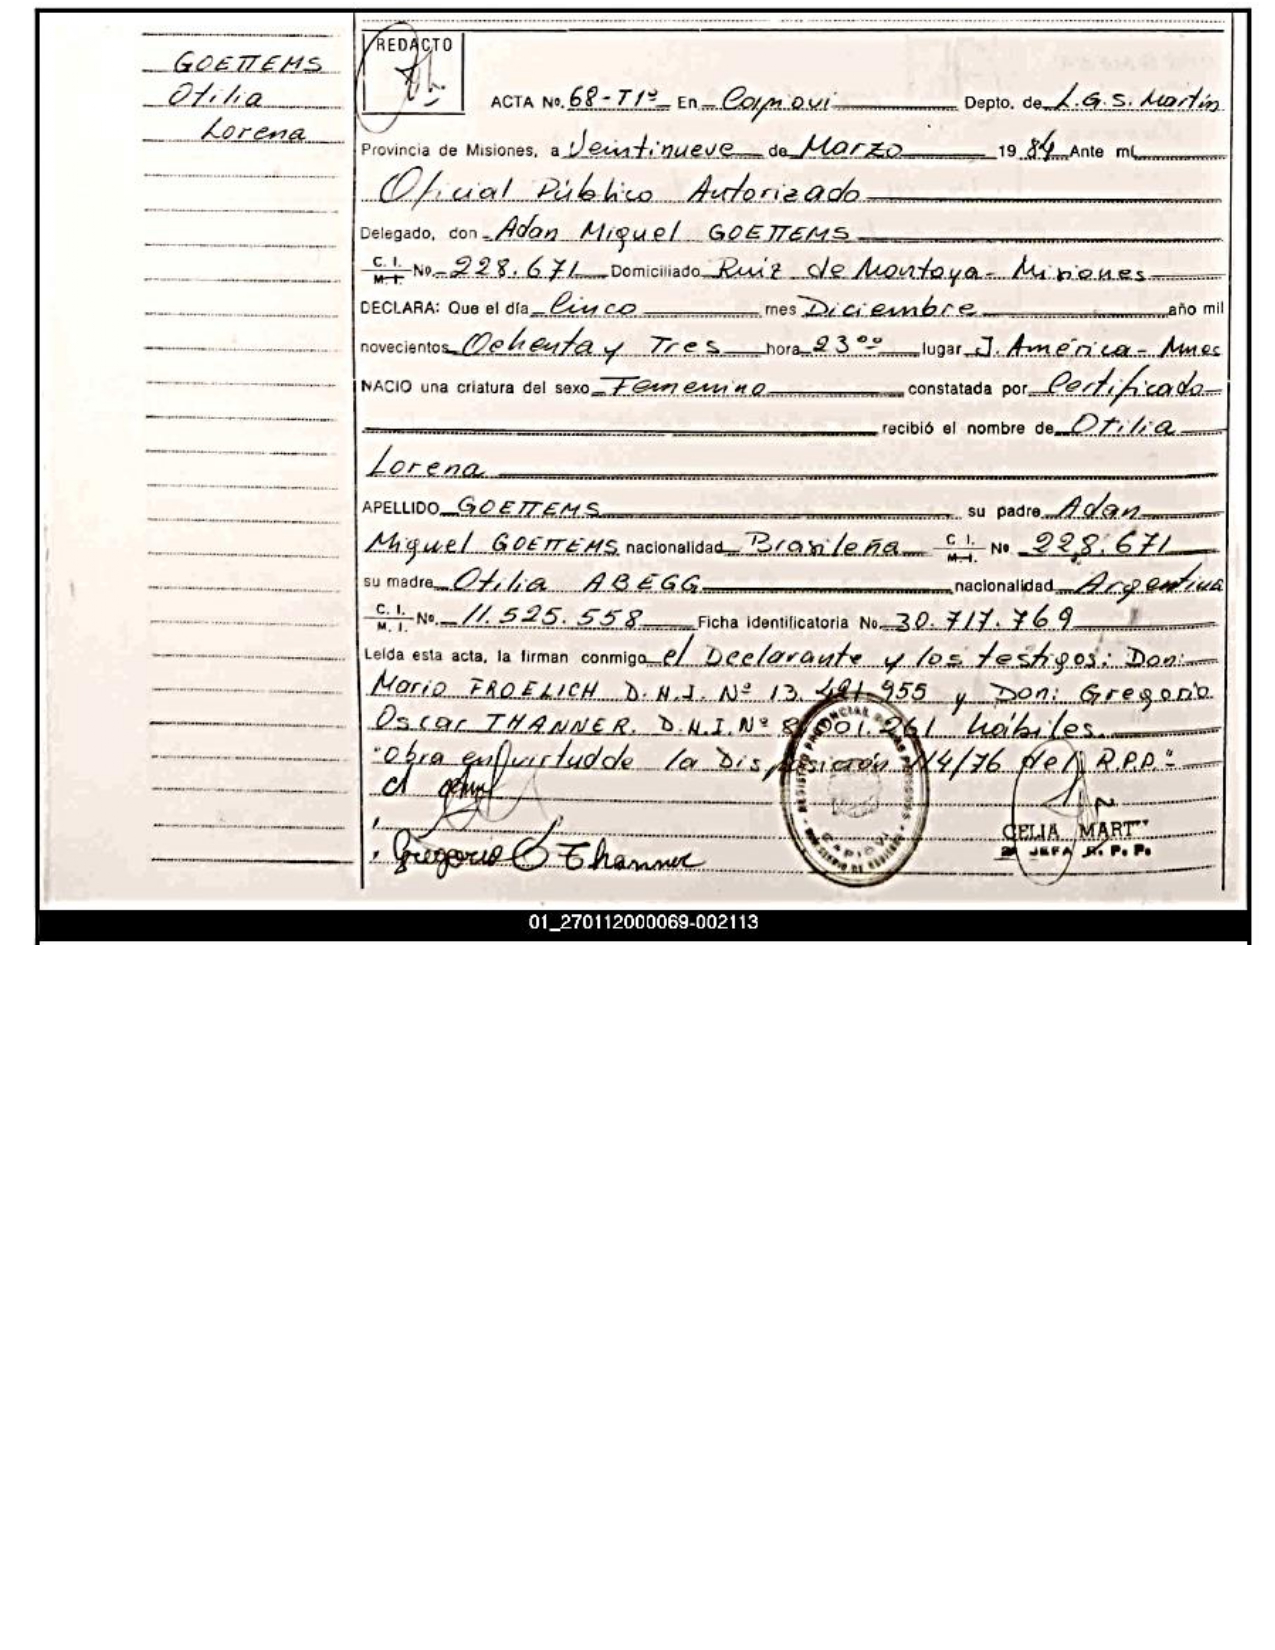 GOETTEMS
Otilia
Lorena
REDACTO
ACTA No. 68-T1º En Capioví Depto. de L.G.S. Martín
Provincia de Misiones, a Veintinueve de Marzo 1984 Ante mí
Oficial Público Autorizado
Delegado, don Adan Miguel GOETTEMS
C. I. M. I. No 228.671 Domiciliado Ruiz de Montoya - Misiones
DECLARA: Que el día Cinco mes Diciembre año mil
novecientos Ochenta y Tres hora 23ºº lugar J. América - Mnes
NACIO una criatura del sexo Femenino constatada por Certificado
recibió el nombre de Otilia
Lorena
APELLIDO GOETTEMS su padre Adan
Miguel GOETTEMS nacionalidad Brasileña C. I. M. I. No 228.671
su madre Otilia ABEGG nacionalidad Argentina
C. I. M. I. No. 11.525.558 Ficha identificatoria No. 30.717.769
Leída esta acta, la firman conmigo el Declarante y los testigos: Don:
Mario FROELICH D.N.I. Nº 13.491.955 y Don: Gregorio
Oscar THANNER. D.N.I. Nº 8.001.261 hábiles.
"Obra en virtud de la Disposición 114/76 del R.P.P."
Gregorio O Thanner
CELIA MART
JEFA R. P. P.
REGISTRO PROVINCIAL DE LAS PERSONAS
CAPIOVI
01_270112000069-002113